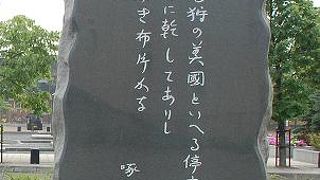 狩の美國といへる停
に乾してありし
き布片かな
啄